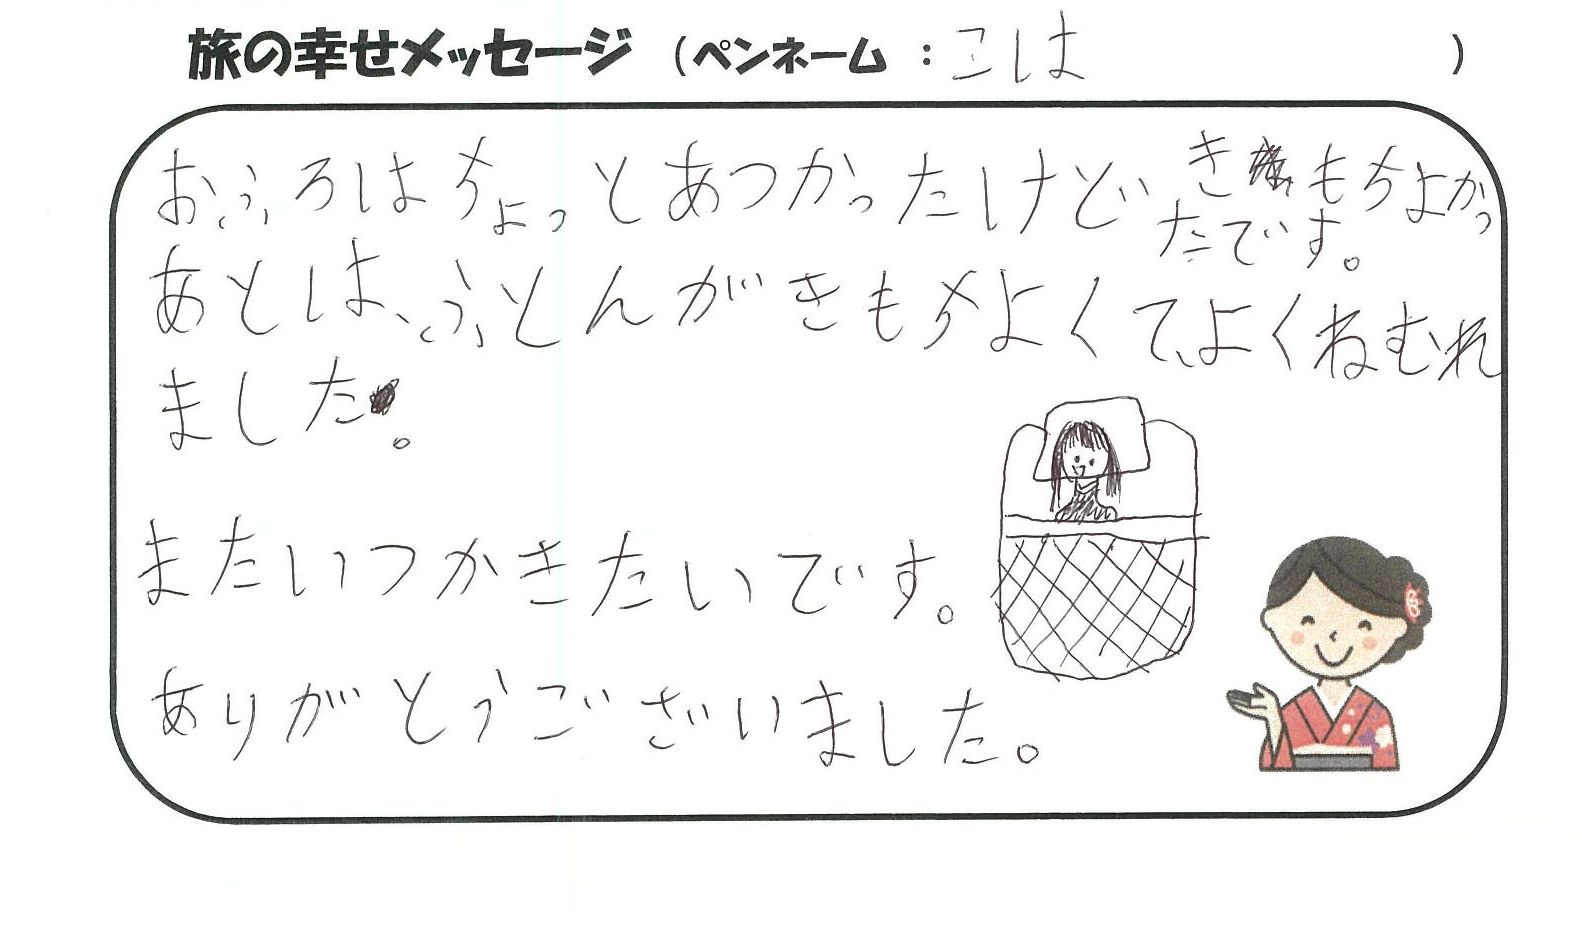 旅の幸せメッセージ (ペンネーム：こは)
おふろはちょっとあつかったけどきもちよかっ
たです。
あとは、ふとんがきもちよくて、よくねむれ
ました。
またいつかきたいです。
ありがとうございました。